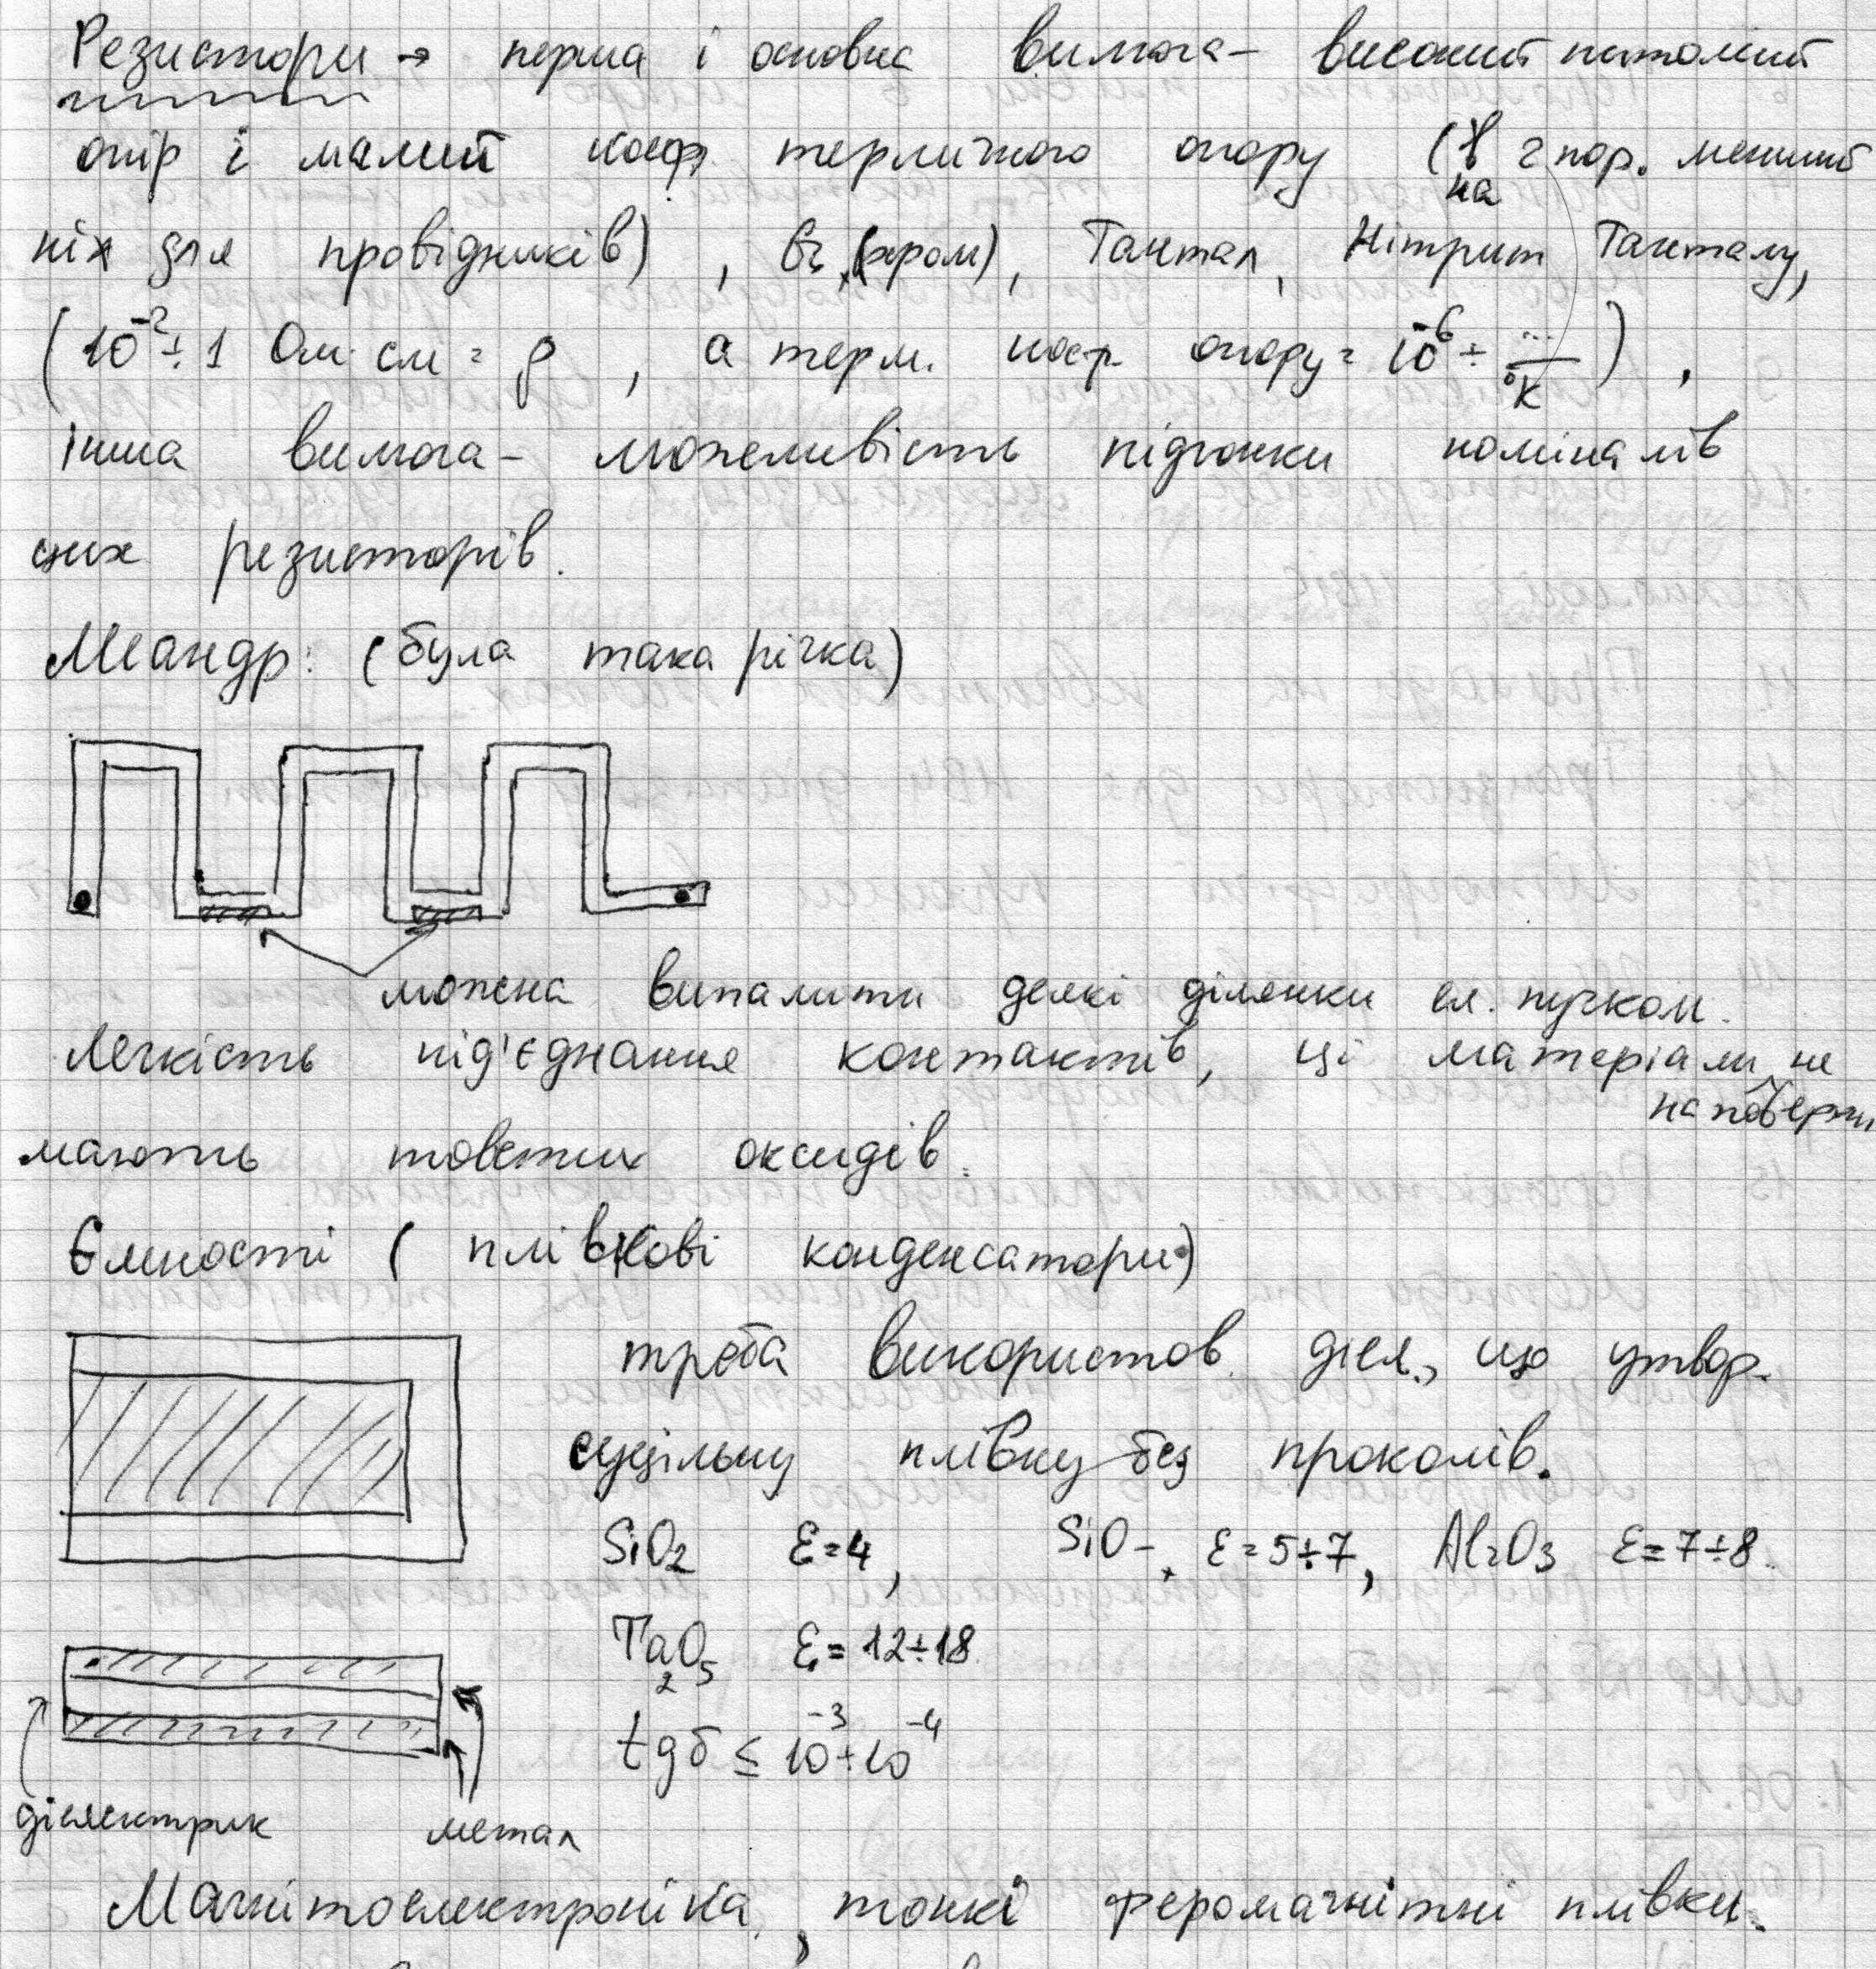 Резистори → перша і основна вимога - високий питомий
опір і малий коеф термічного опору (на 2 пор. менший
ніж для провідників), Cr (хром), Тантал, Нітрит Танталу,
(10⁻² ÷ 1 Ом·см = ρ, а терм. коеф. опору = 10⁻⁶ ÷ .../°K),
інша вимога - можливість підгонки номіналів
цих резисторів.
Меандр: (була така річка)
можна випалити деякі ділянки ел. пучком.
Легкість під'єднання контактів, ці матеріали не
на поверхні
мають товстих оксидів.
Ємності (плівкові конденсатори)
треба використов. діел., що утвор.
суцільну плівку без проколів.
SiO₂ ε=4, SiO - ε=5÷7, Al₂O₃ ε=7÷8.
Ta₂O₅ ε=12÷18
tgδ ≤ 10⁻³÷10⁻⁴
діелектрик метал
Магнітоелектроніка, тонкі феромагнітні плівки.